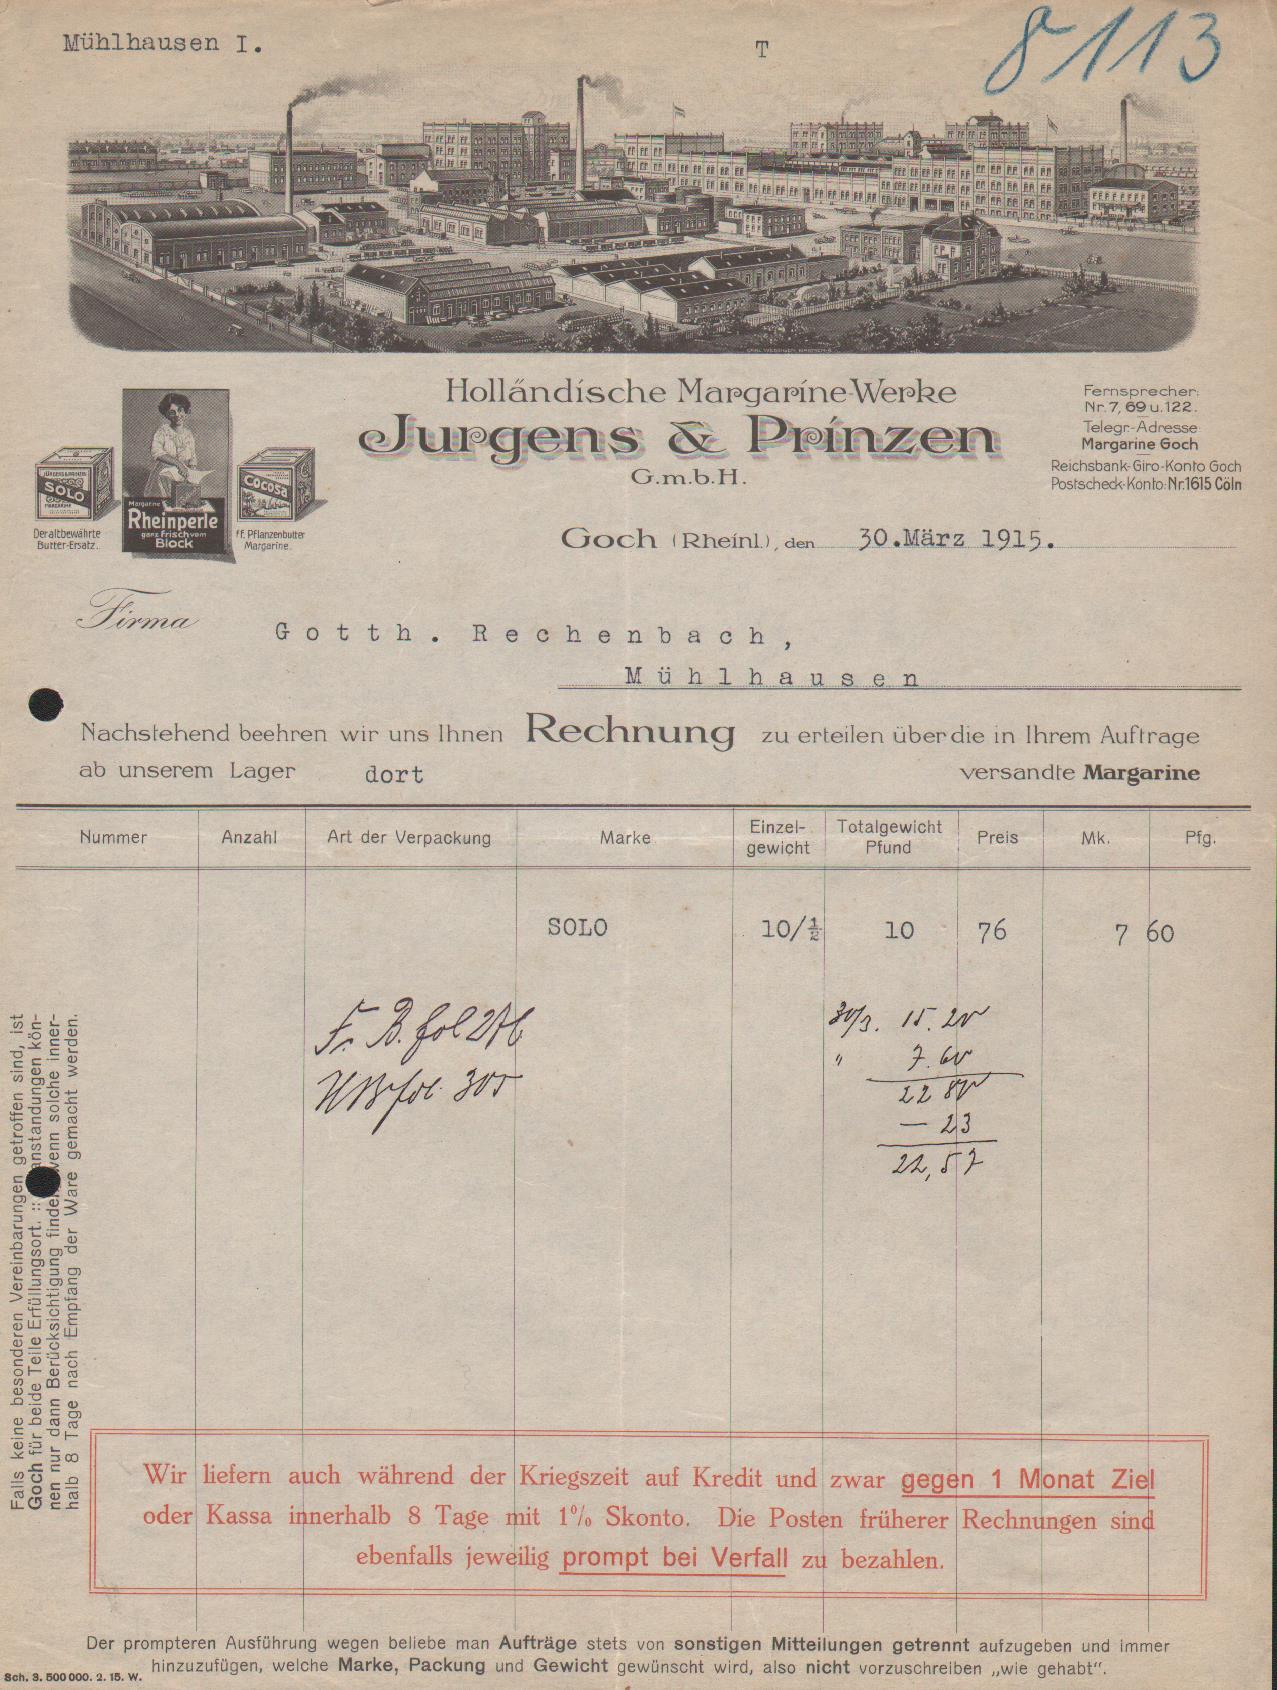 Mühlhausen I.
T
8113
Holländische Margarine-Werke
Jurgens & Prinzen
G.m.b.H.
Fernsprecher:
Nr. 7, 69 u. 122.
Telegr.-Adresse:
Margarine Goch
Reichsbank-Giro-Konto Goch
Postscheck-Konto: Nr. 1615 Cöln
JURGENS & PRINZEN
SOLO
MARGARINE
Der altbewährte
Butter-Ersatz.
Margarine
Rheinperle
ganz frisch vom
Block
COCOSA
ff. Pflanzenbutter
Margarine.
Goch (Rheinl.), den 30. März 1915.
Firma
Gotth. Rechenbach,
Mühlhausen
Nachstehend beehren wir uns Ihnen Rechnung zu erteilen über die in Ihrem Auftrage
ab unserem Lager dort versandte Margarine
Nummer Anzahl Art der Verpackung Marke Einzel-gewicht Totalgewicht Pfund Preis Mk. Pfg.
SOLO 10/½ 10 76 7 60
30/3. 15.20
" 7.60
22 80
— 23
22,57
Falls keine besonderen Vereinbarungen getroffen sind, ist
Goch für beide Teile Erfüllungsort. :: anstandungen kön-
nen nur dann Berücksichtigung finden, wenn solche inner-
halb 8 Tage nach Empfang der Ware gemacht werden.
Wir liefern auch während der Kriegszeit auf Kredit und zwar gegen 1 Monat Ziel
oder Kassa innerhalb 8 Tage mit 1% Skonto. Die Posten früherer Rechnungen sind
ebenfalls jeweilig prompt bei Verfall zu bezahlen.
Der prompteren Ausführung wegen beliebe man Aufträge stets von sonstigen Mitteilungen getrennt aufzugeben und immer
hinzuzufügen, welche Marke, Packung und Gewicht gewünscht wird, also nicht vorzuschreiben „wie gehabt“.
Sch. 3. 500 000. 2. 15. W.